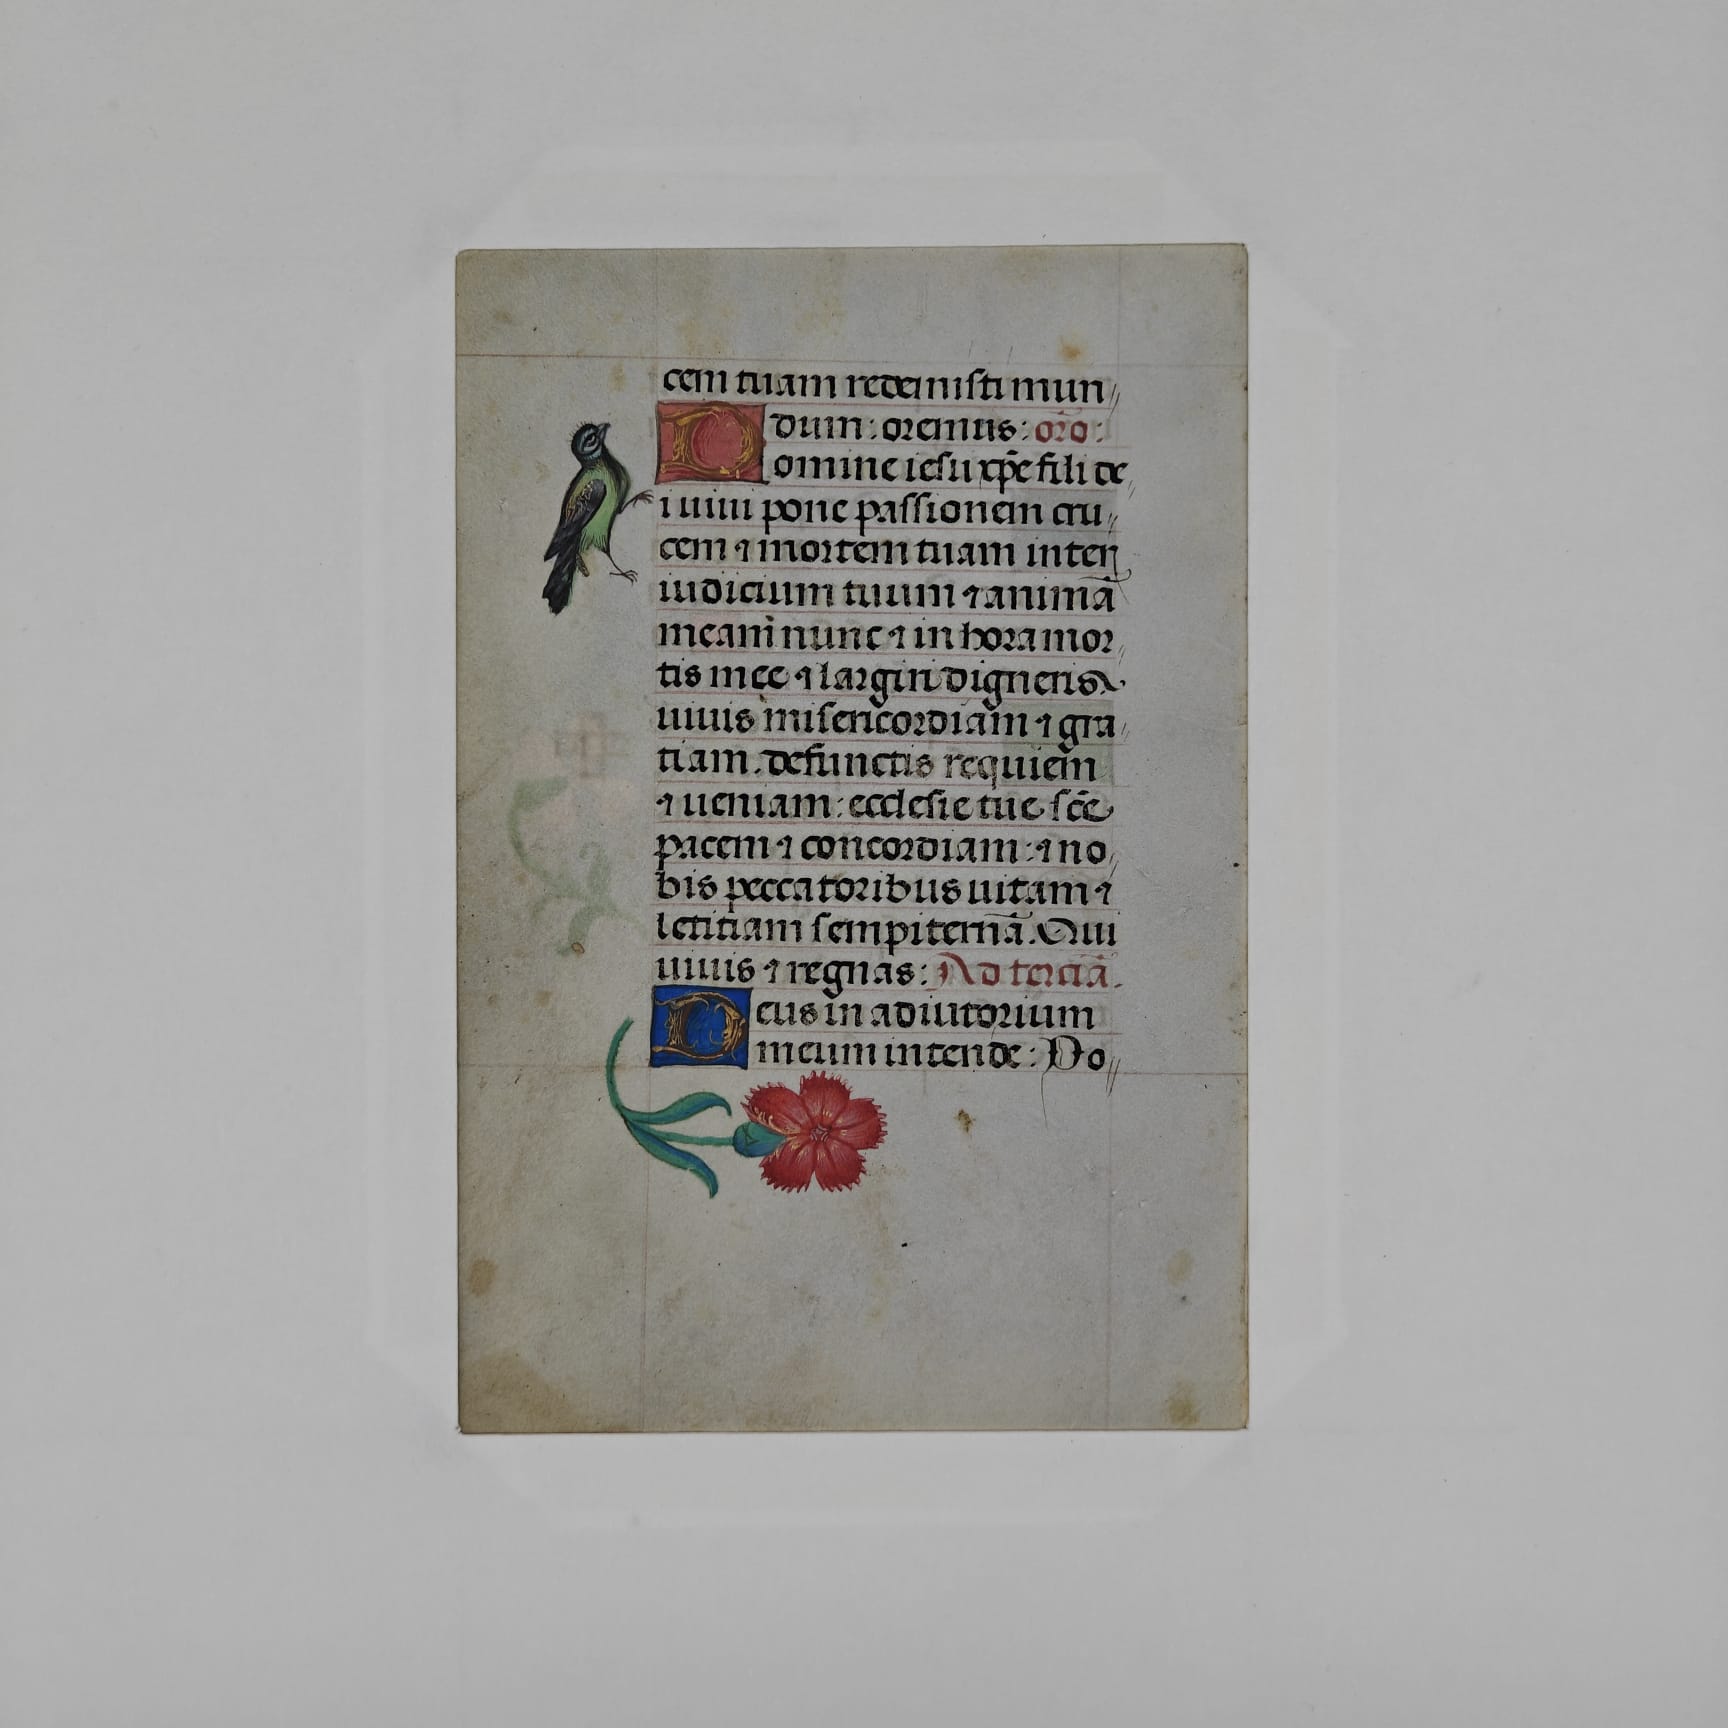 cem tuam redemisti mun
dum: oremus: oro:
Domine iesu xp̄e fili de
i uiui pone passionem cru
cem ⁊ mortem tuam inter
iudicium tuum ⁊ animā
meam nunc ⁊ in hora mor
tis mee ⁊ largiri digneris
uiuis misericordiam ⁊ gra
tiam. defunctis requiem
⁊ ueniam: ecclesie tue sc̄e
pacem ⁊ concordiam: ⁊ no
bis peccatoribus uitam ⁊
letitiam sempiternā. Qui
uiuis ⁊ regnas: Ad terciā.
Deus in adiutorium
meum intende: Do